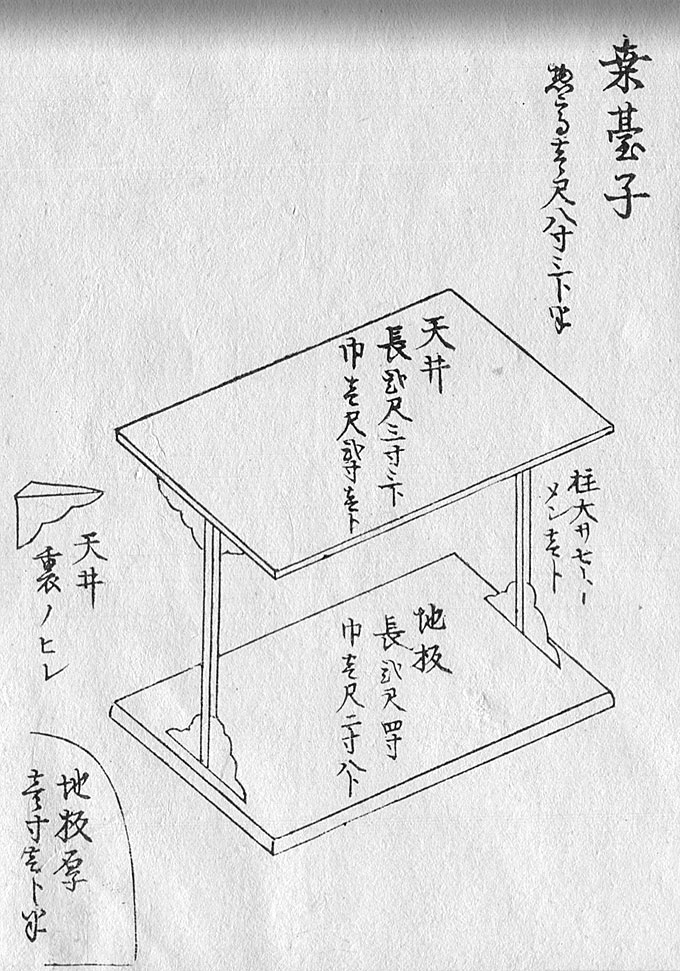 桒臺子
惣高壱尺八寸三卜半
天井
長弐尺三寸三卜
巾壱尺弐寸壱卜
柱大サ七卜
メン壱卜
地板
長弐尺四寸
巾壱尺二寸八卜
天井
裏ノヒレ
地板厚
壱寸壱卜半